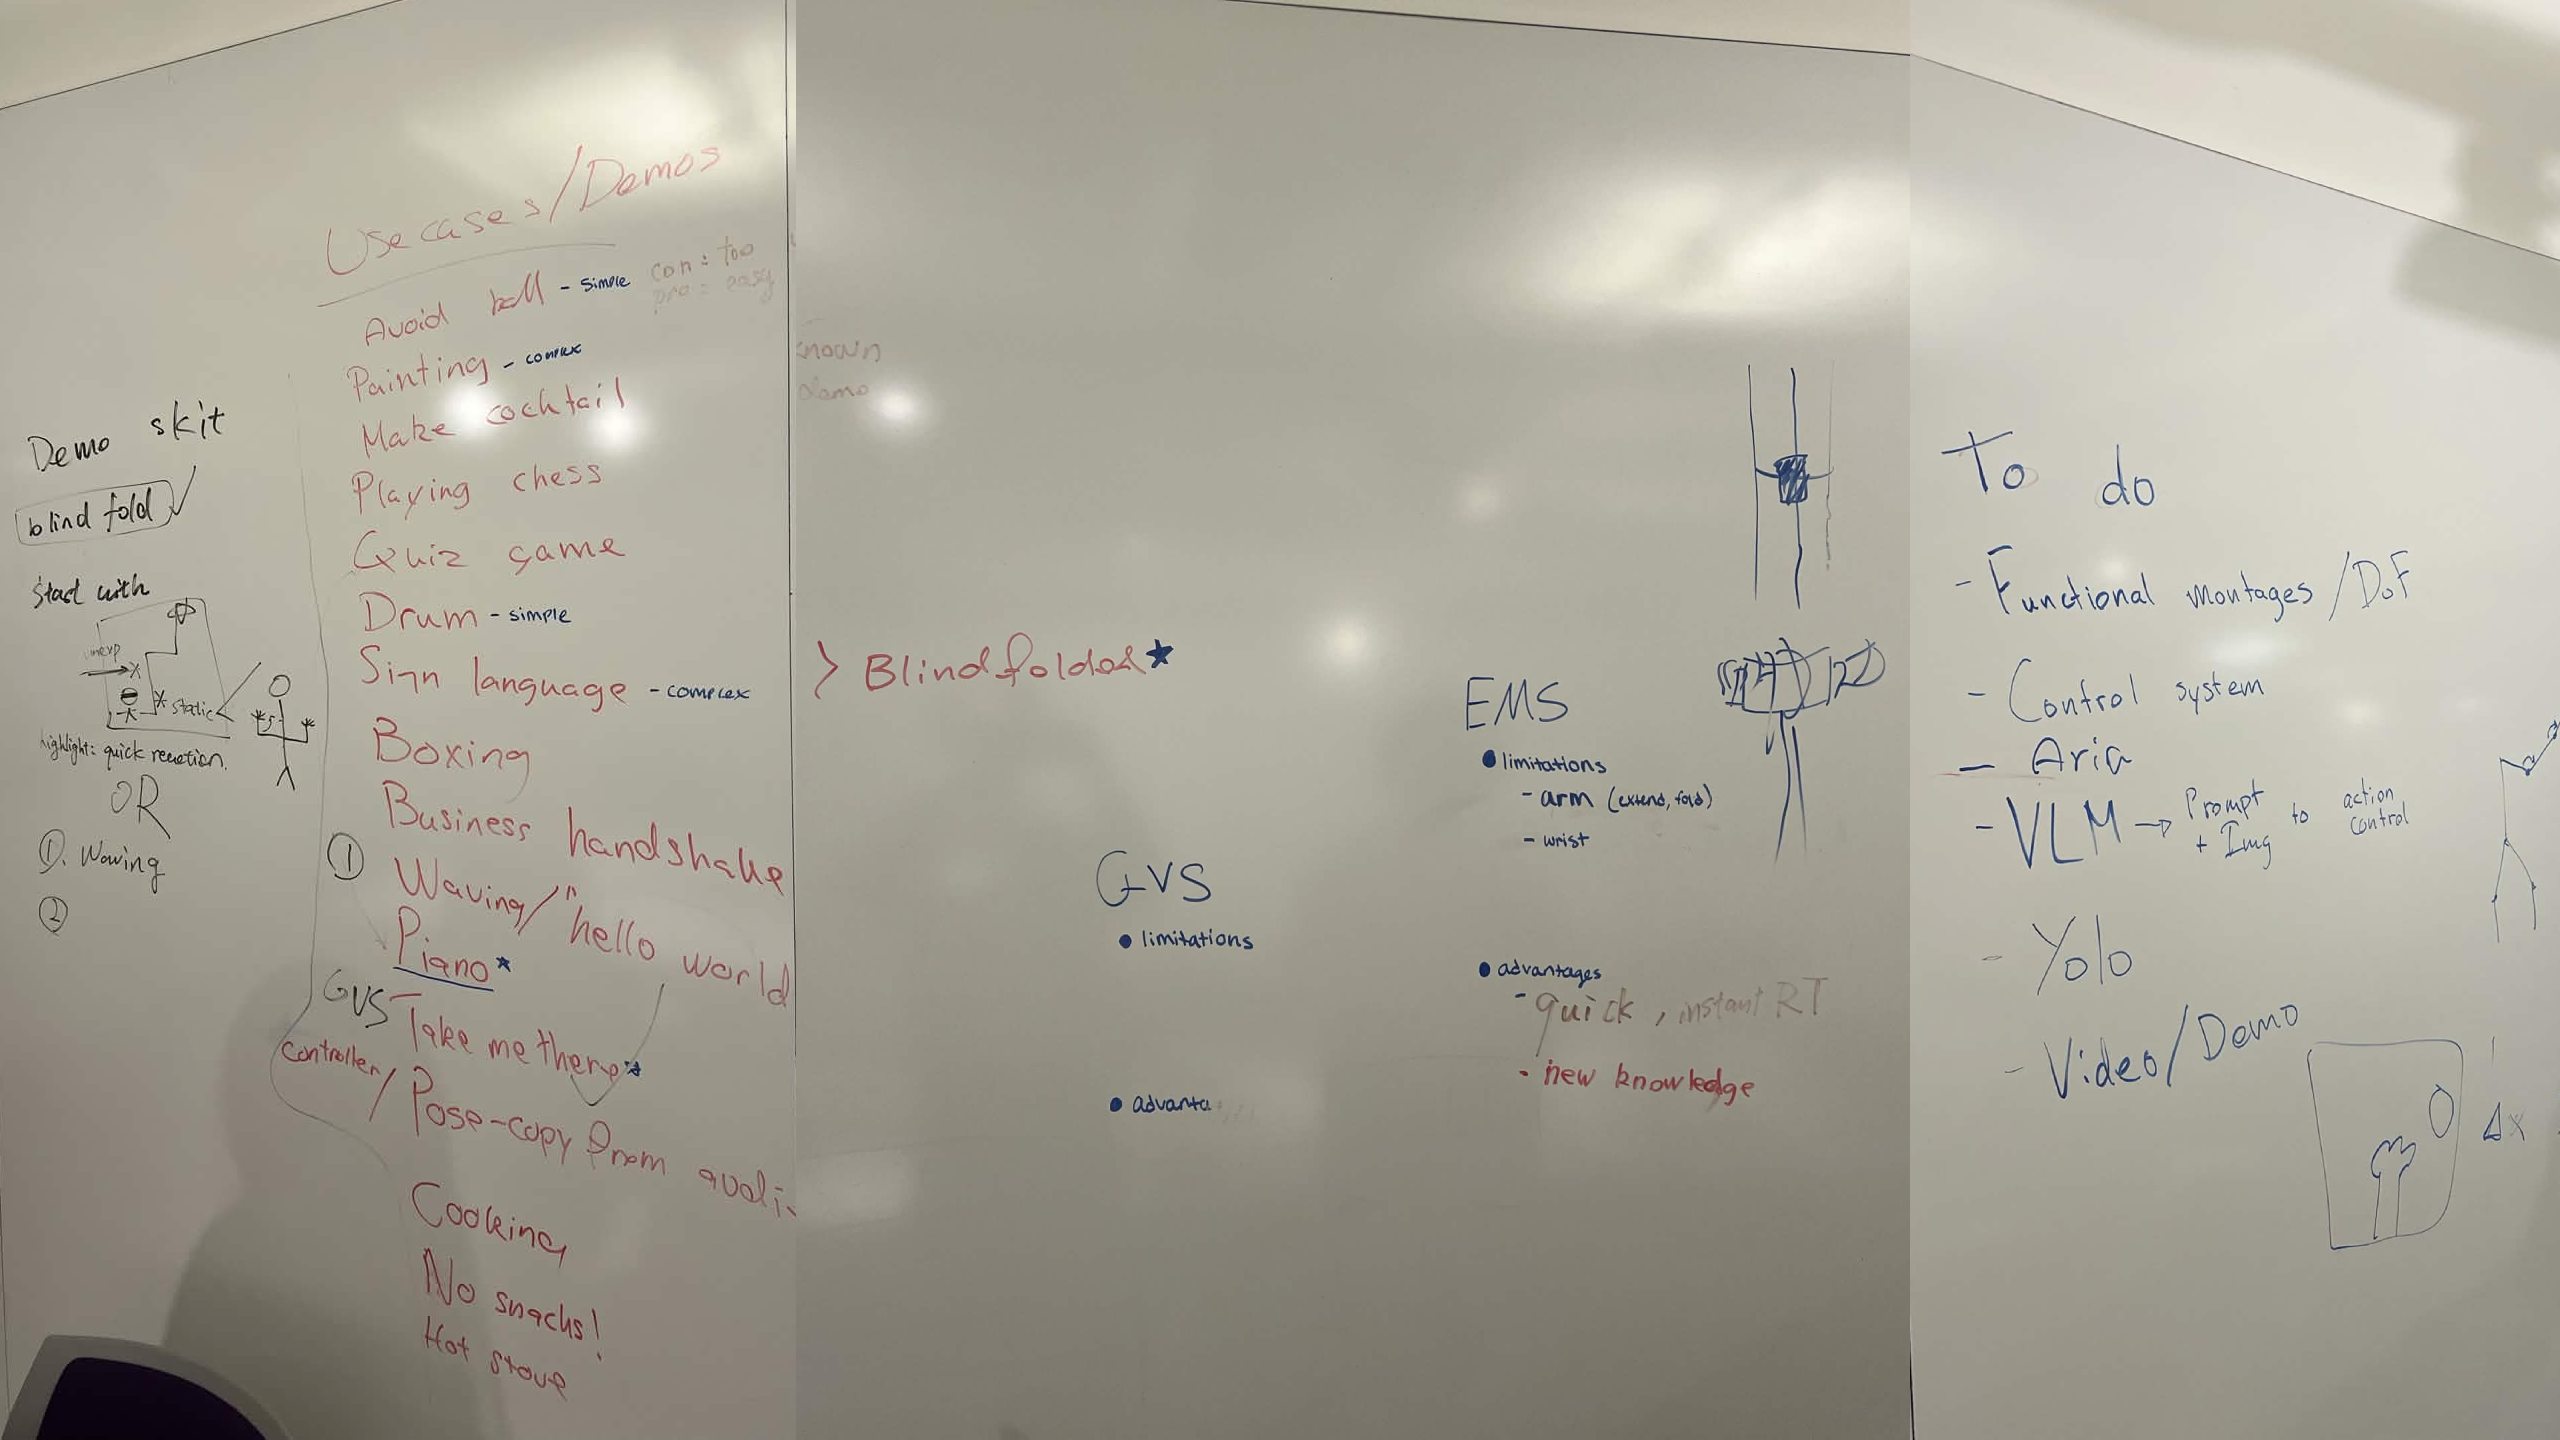 Demo skit
blind fold
Start with
* static
highlight: quick reaction.
OR
①. Waving
②
Use cases/Demos
Avoid ball - simple con: too
pro: easy
Painting - complex
Make cocktail
Playing chess
Quiz game
Drum - simple
Sign language - complex
Boxing
Business handshake
① Waving/"hello world
Piano*
GVS Take me there*
Controller/ Pose-copy from
Cooking
No snacks!
Hot stove
known
demo
> Blindfolded★
GVS
• limitations
• advanta
EMS
• limitations
- arm (extend, fold)
- wrist
• advantages
- quick, instant RT
- new knowledge
To do
- Functional montages/DoF
- Control system
- Aria
- VLM → Prompt + Img to action control
- Yolo
- Video/Demo
Δx